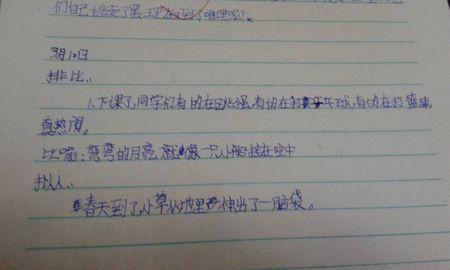 们自己边走了黑,现在到了哪里呢?
3月10日
排比:
1.下课了,同学们有的在跳绳,有的在打乒乓球,有的在打篮球,
真热闹。
比喻:弯弯的月亮就像一只小船挂在空中
拟人:
春天到了,小草从地里伸出了一脑袋。